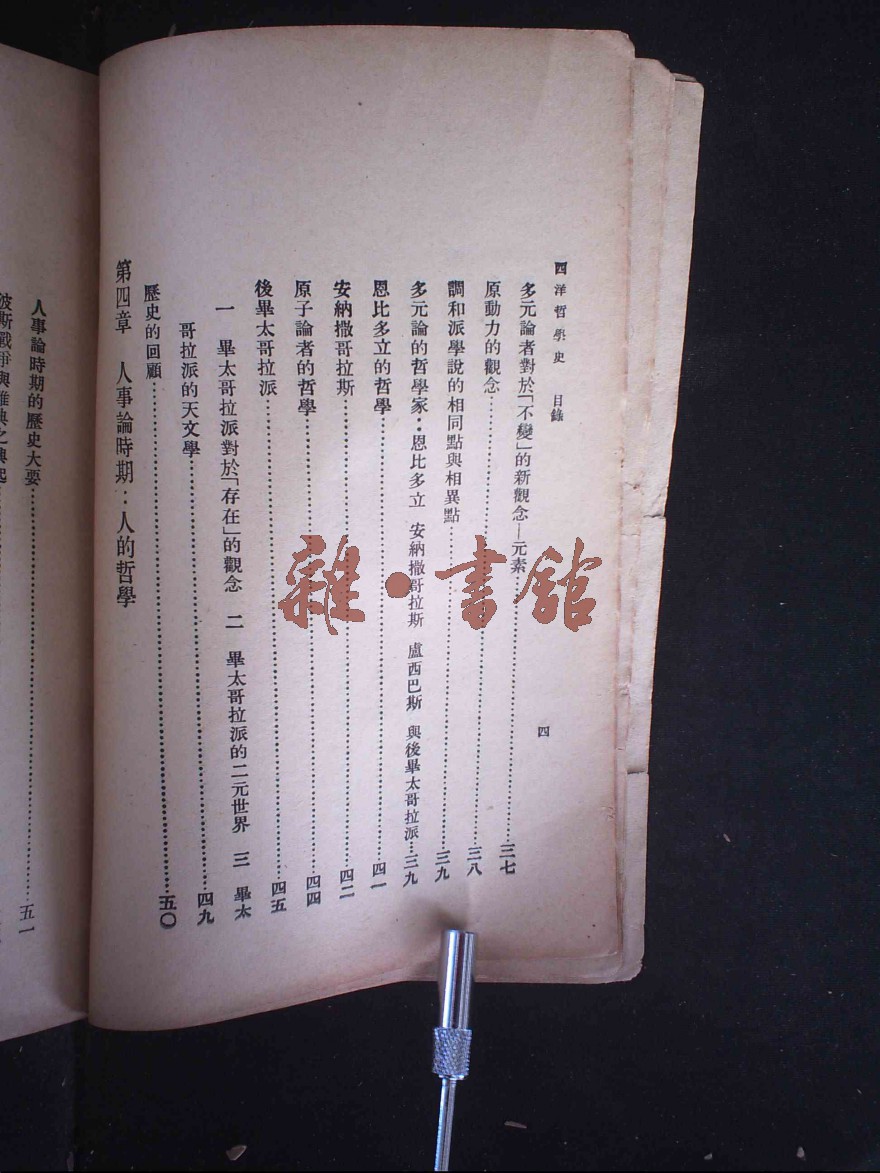 西洋哲學史 目錄
四
多元論者對於「不變」的新觀念—元素……三七
原動力的觀念……三八
調和派學說的相同點與相異點……三九
多元論的哲學家：恩比多立 安納撒哥拉斯 盧西巴斯 與後畢太哥拉派…三九
恩比多立的哲學……四一
安納撒哥拉斯……四二
原子論者的哲學……四四
後畢太哥拉派……四五
一 畢太哥拉派對於「存在」的觀念 二 畢太哥拉派的二元世界 三 畢太
哥拉派的天文學……四九
歷史的回顧……五〇
第四章 人事論時期：人的哲學
人事論時期的歷史大要……五一
波斯戰爭與雅典之興起
雜·書館